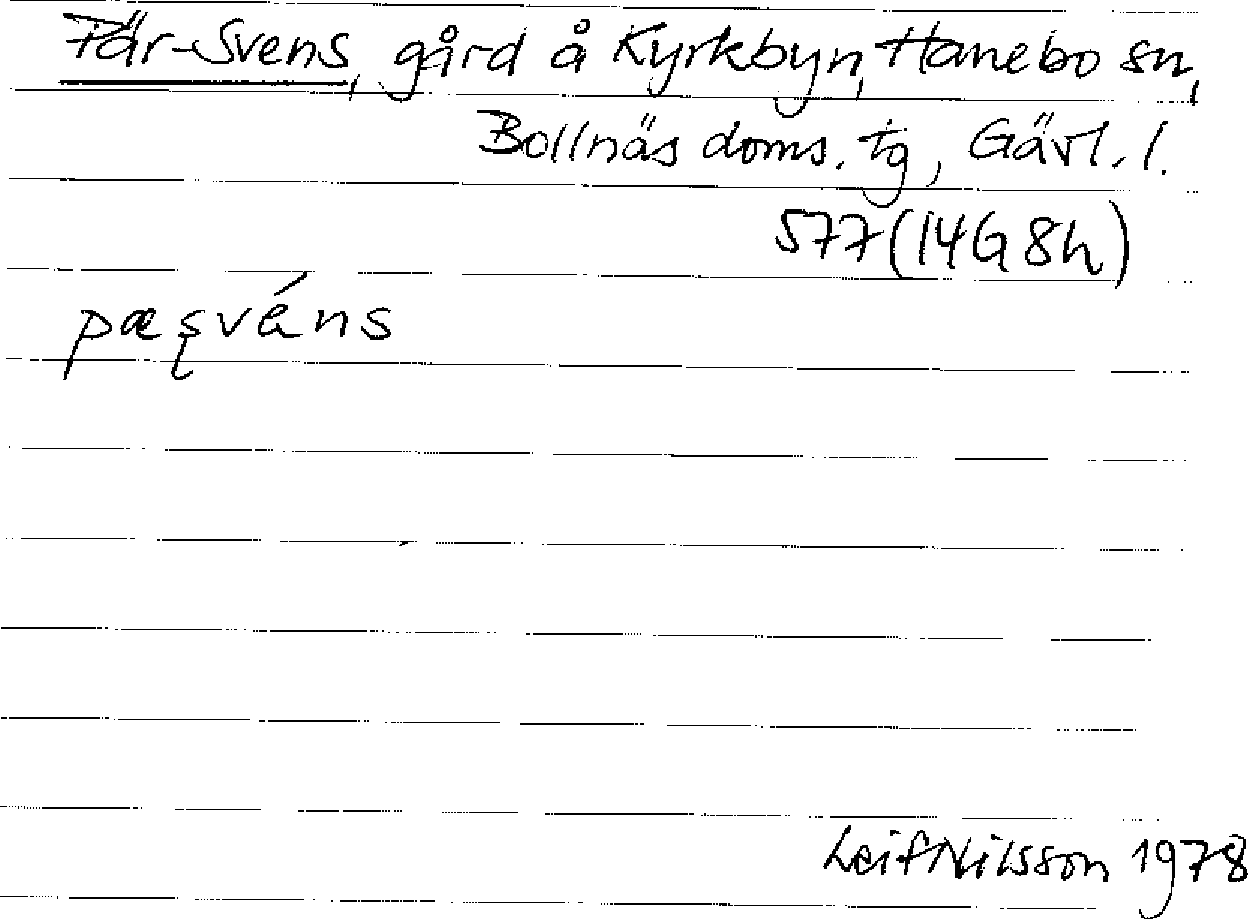 Pär-Svens, gård å Kyrkbyn, Hanebo sn,
Bollnäs doms. tg, Gävl. l.
577 (14G 8h)
pæʂvéns
Leif Nilsson 1978